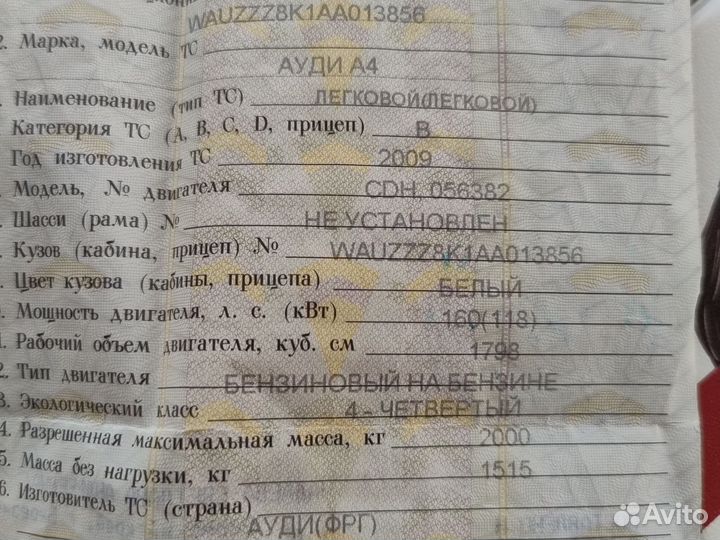 WAUZZZ8K1AA013856
2. Марка, модель ТС
АУДИ А4
Наименование (тип ТС) ЛЕГКОВОЙ(ЛЕГКОВОЙ)
Категория ТС (A, B, C, D, прицеп) B
Год изготовления ТС 2009
Модель, № двигателя CDH, 056382
Шасси (рама) № НЕ УСТАНОВЛЕН
Кузов (кабина, прицеп) № WAUZZZ8K1AA013856
Цвет кузова (кабины, прицепа) БЕЛЫЙ
Мощность двигателя, л. с. (кВт) 160(118)
1. Рабочий объем двигателя, куб. см 1798
2. Тип двигателя БЕНЗИНОВЫЙ НА БЕНЗИНЕ
3. Экологический класс 4 - ЧЕТВЕРТЫЙ
4. Разрешенная максимальная масса, кг 2000
5. Масса без нагрузки, кг 1515
6. Изготовитель ТС (страна)
АУДИ(ФРГ)
Avito